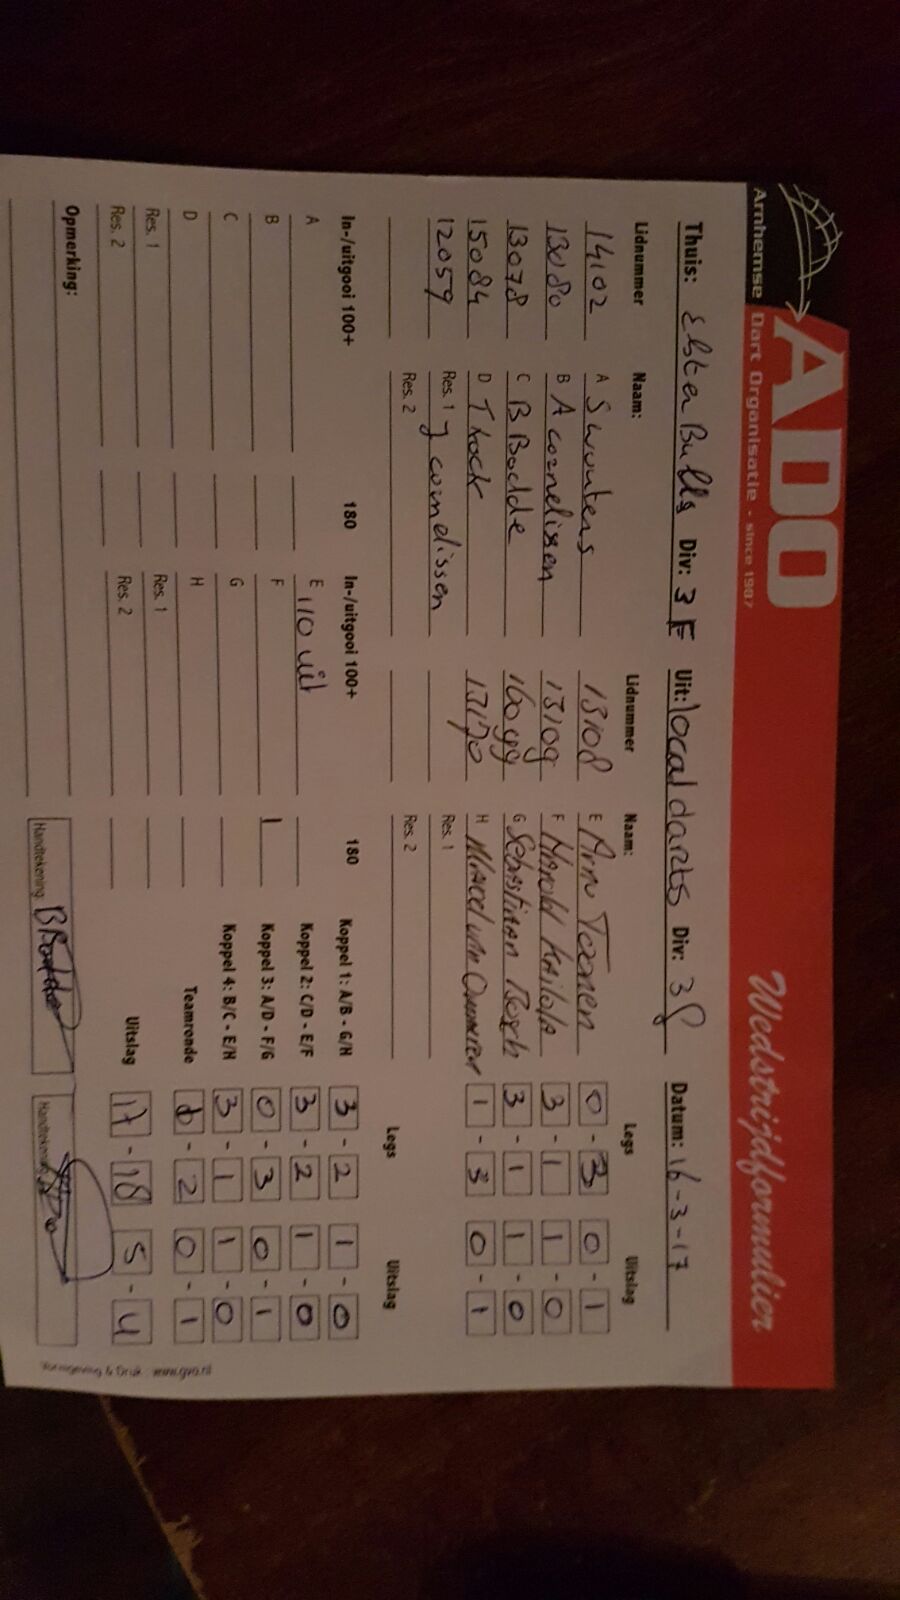 ADO
Arnhemse Dart Organisatie - since 1987
Wedstrijdformulier
Thuis: Elsta Bulls Div: 3F Uit: local darts Div: 3f Datum: 16-3-17
Lidnummer Naam: Lidnummer Naam: Legs Uitslag
14102 A S wouters 13108 E Arno Toonen 0 - 3 0 - 1
13080 B A cornelissen 13109 F Harold 3 - 1 1 - 0
13078 C B Bodde 16099 G Sebastiaan 3 - 1 1 - 0
15084 D T Kock 13170 H Marcel van Ommeren 1 - 3 0 - 1
12059 Res. 1 J cornelissen Res. 1
Res. 2 Res. 2 Legs Uitslag
In-/uitgooi 100+ 180 In-/uitgooi 100+ 180 Koppel 1: A/B - G/H 3 - 2 1 - 0
A E 110 uit Koppel 2: C/D - E/F 3 - 2 1 - 0
B F 1 Koppel 3: A/D - F/G 0 - 3 0 - 1
C G Koppel 4: B/C - E/H 3 - 1 1 - 0
D H Teamronde 2 0 - 1
Res. 1 Res. 1
Res. 2 Res. 2 Uitslag 17 - 18 5 - 4
Opmerking:
Handtekening: B Bodde Handtekening:
Vormgeving & Druk : www.gvo.nl